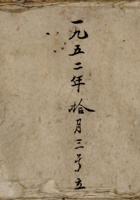 一九五二年拾月三号立